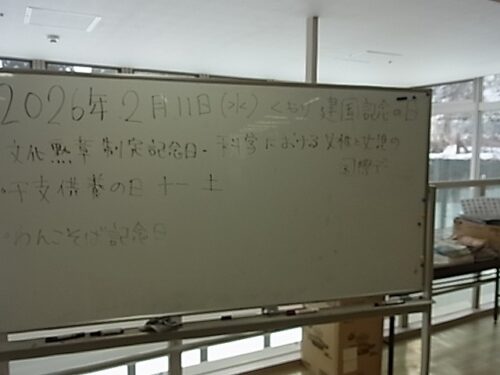 2026年2月11日(水) くもり 建国記念の日
文化勲章制定記念日・科学における女性と女児の
国際デー
・干支供養の日 十一 土
・わんこそば記念日